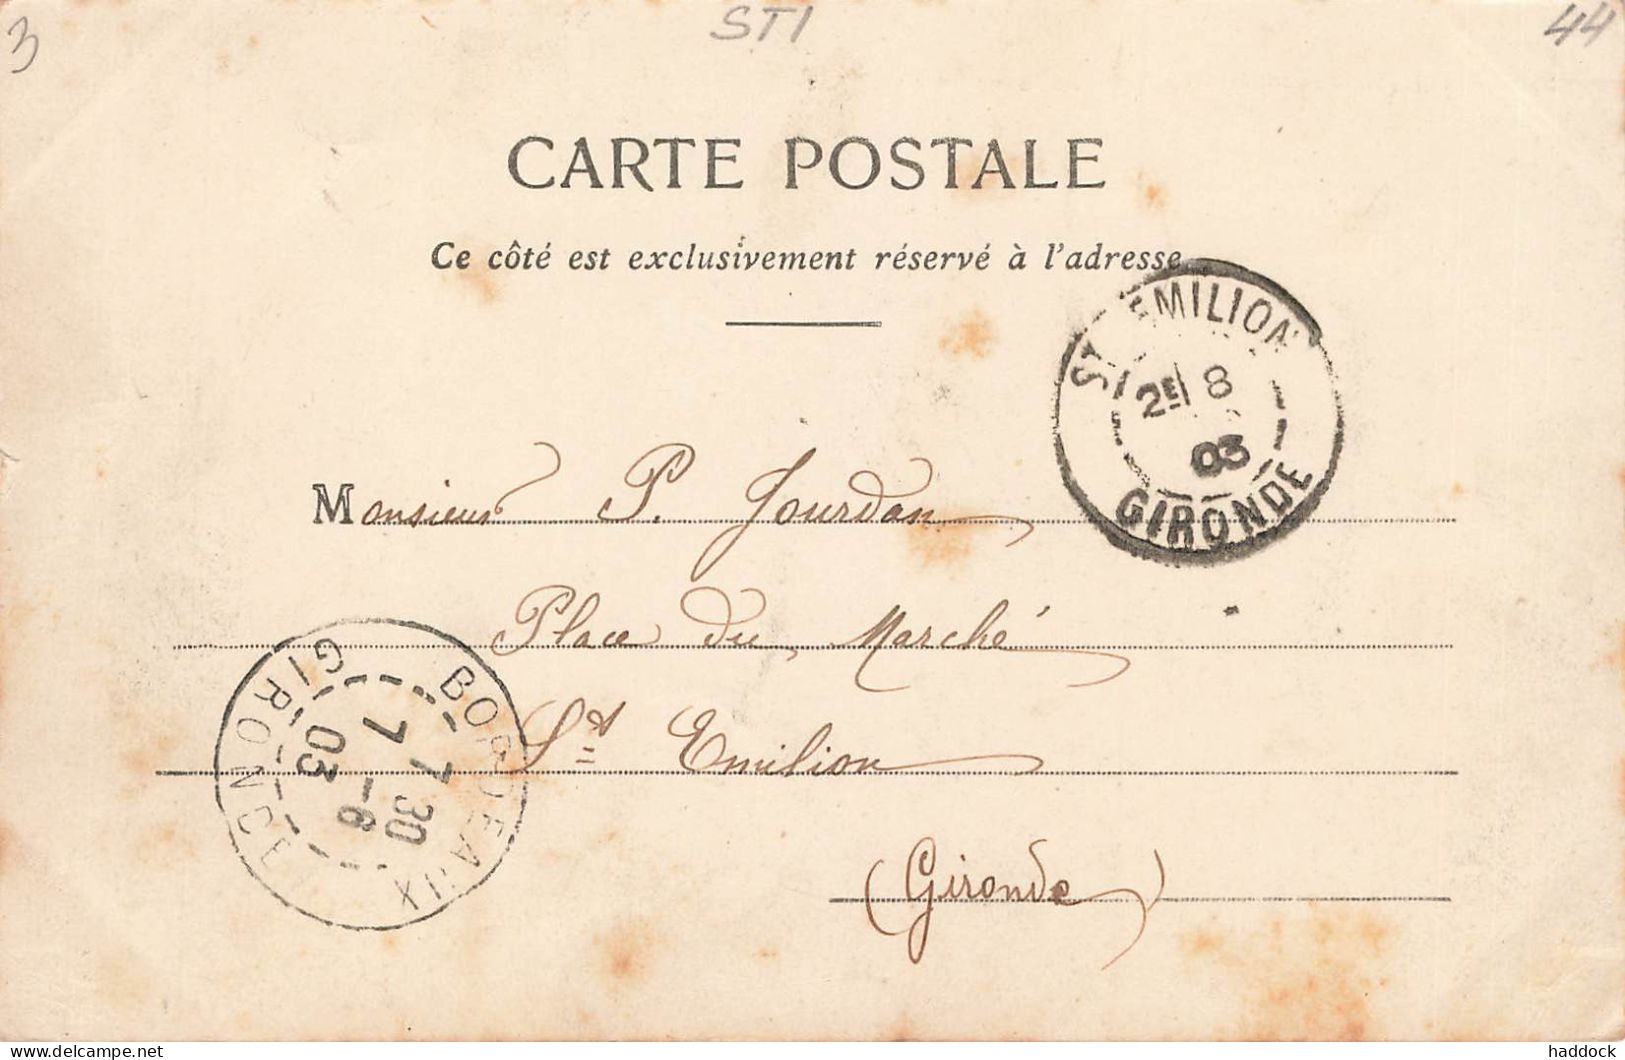 3
STI
44
CARTE POSTALE
Ce côté est exclusivement réservé à l'adresse
ST EMILION
2E 8
03
GIRONDE
Monsieur P. Jourdan
Place du Marché
St Emilion
(Gironde)
BORDEAUX
7 30
7 -6
03
GIRONDE
haddock